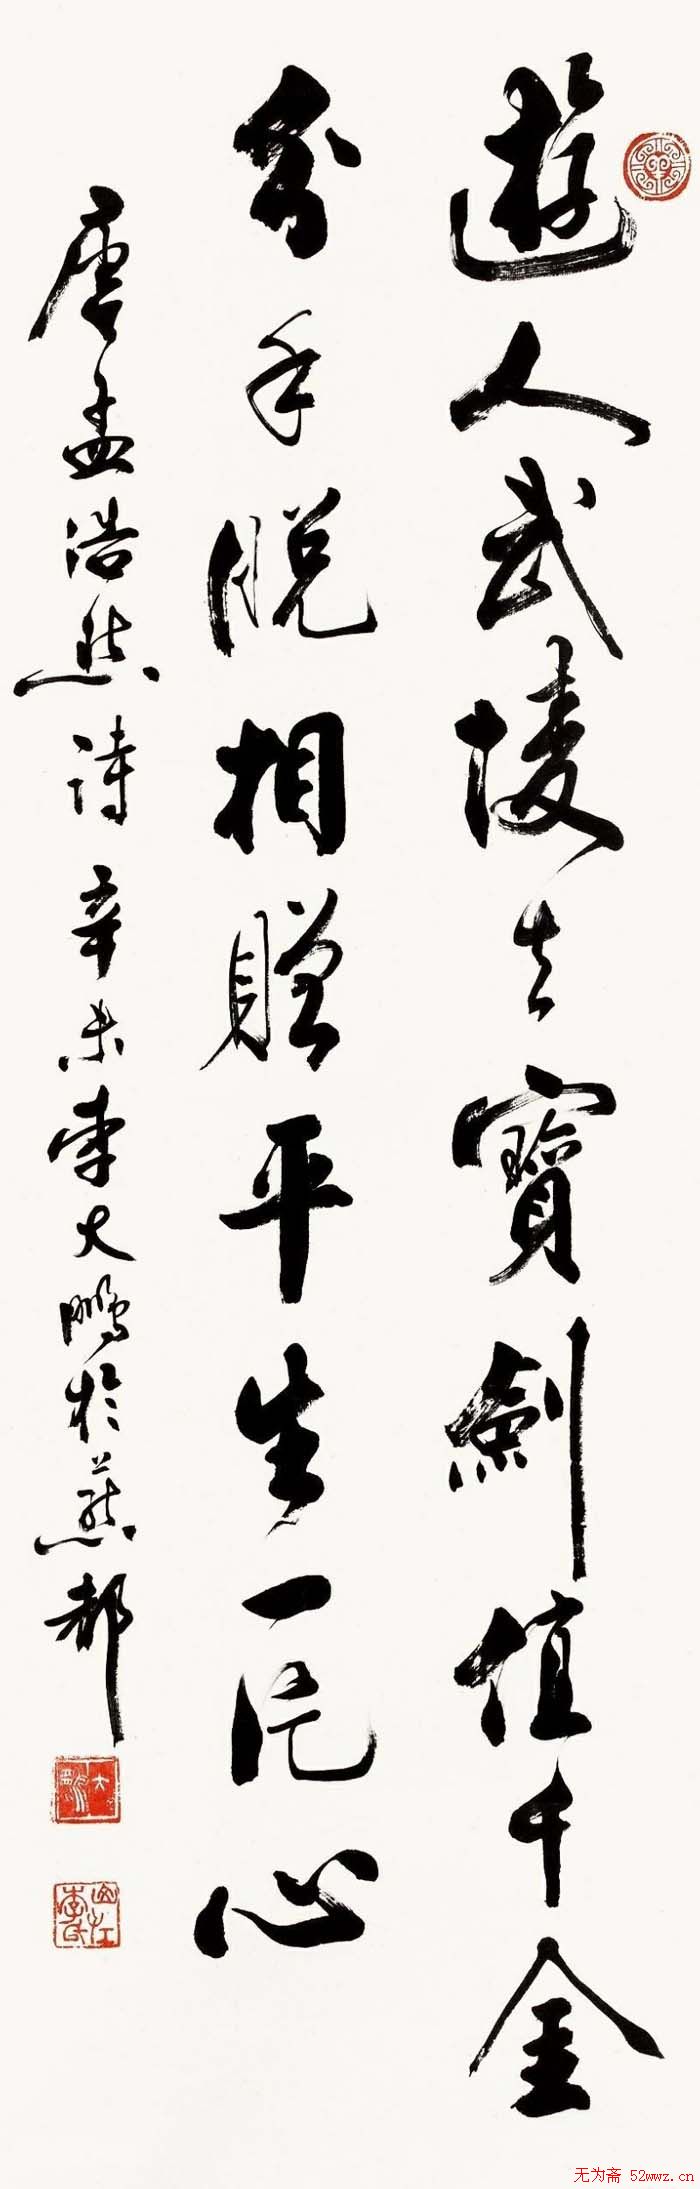 遊人武陵去寶劍值千金
分手脫相贈平生一片心
唐孟浩然詩辛未李大鵬於燕都
无为斋 52wwz.cn